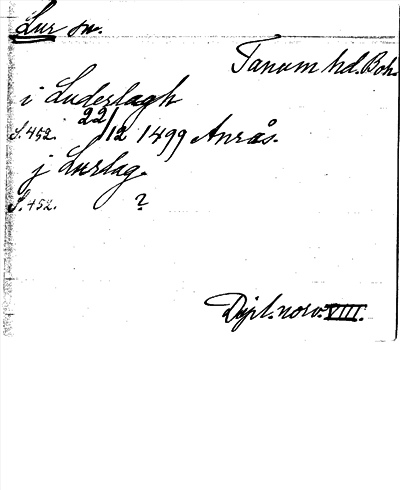 Lur sn.
Tanum hd. Boh.
i Luderlagh
S. 452. 22/12 1499 Anrås.
j Lurlag.
S. 452. ?
Dipl. norv. VIII.